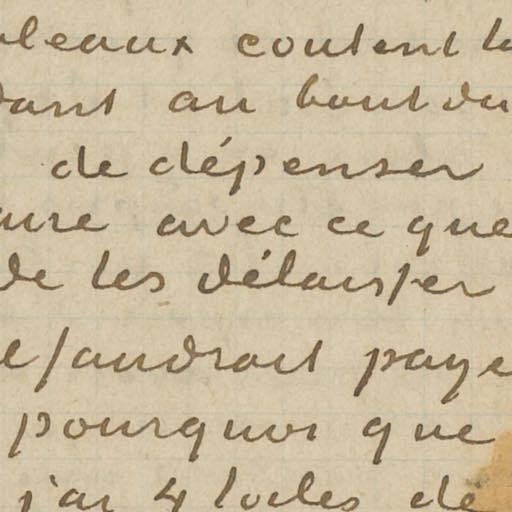 leaux coutent
dant au bout du
de dépenser
avec ce que
de les délaisser
faudrait paye
pourquoi que
j'ai 4 toiles de